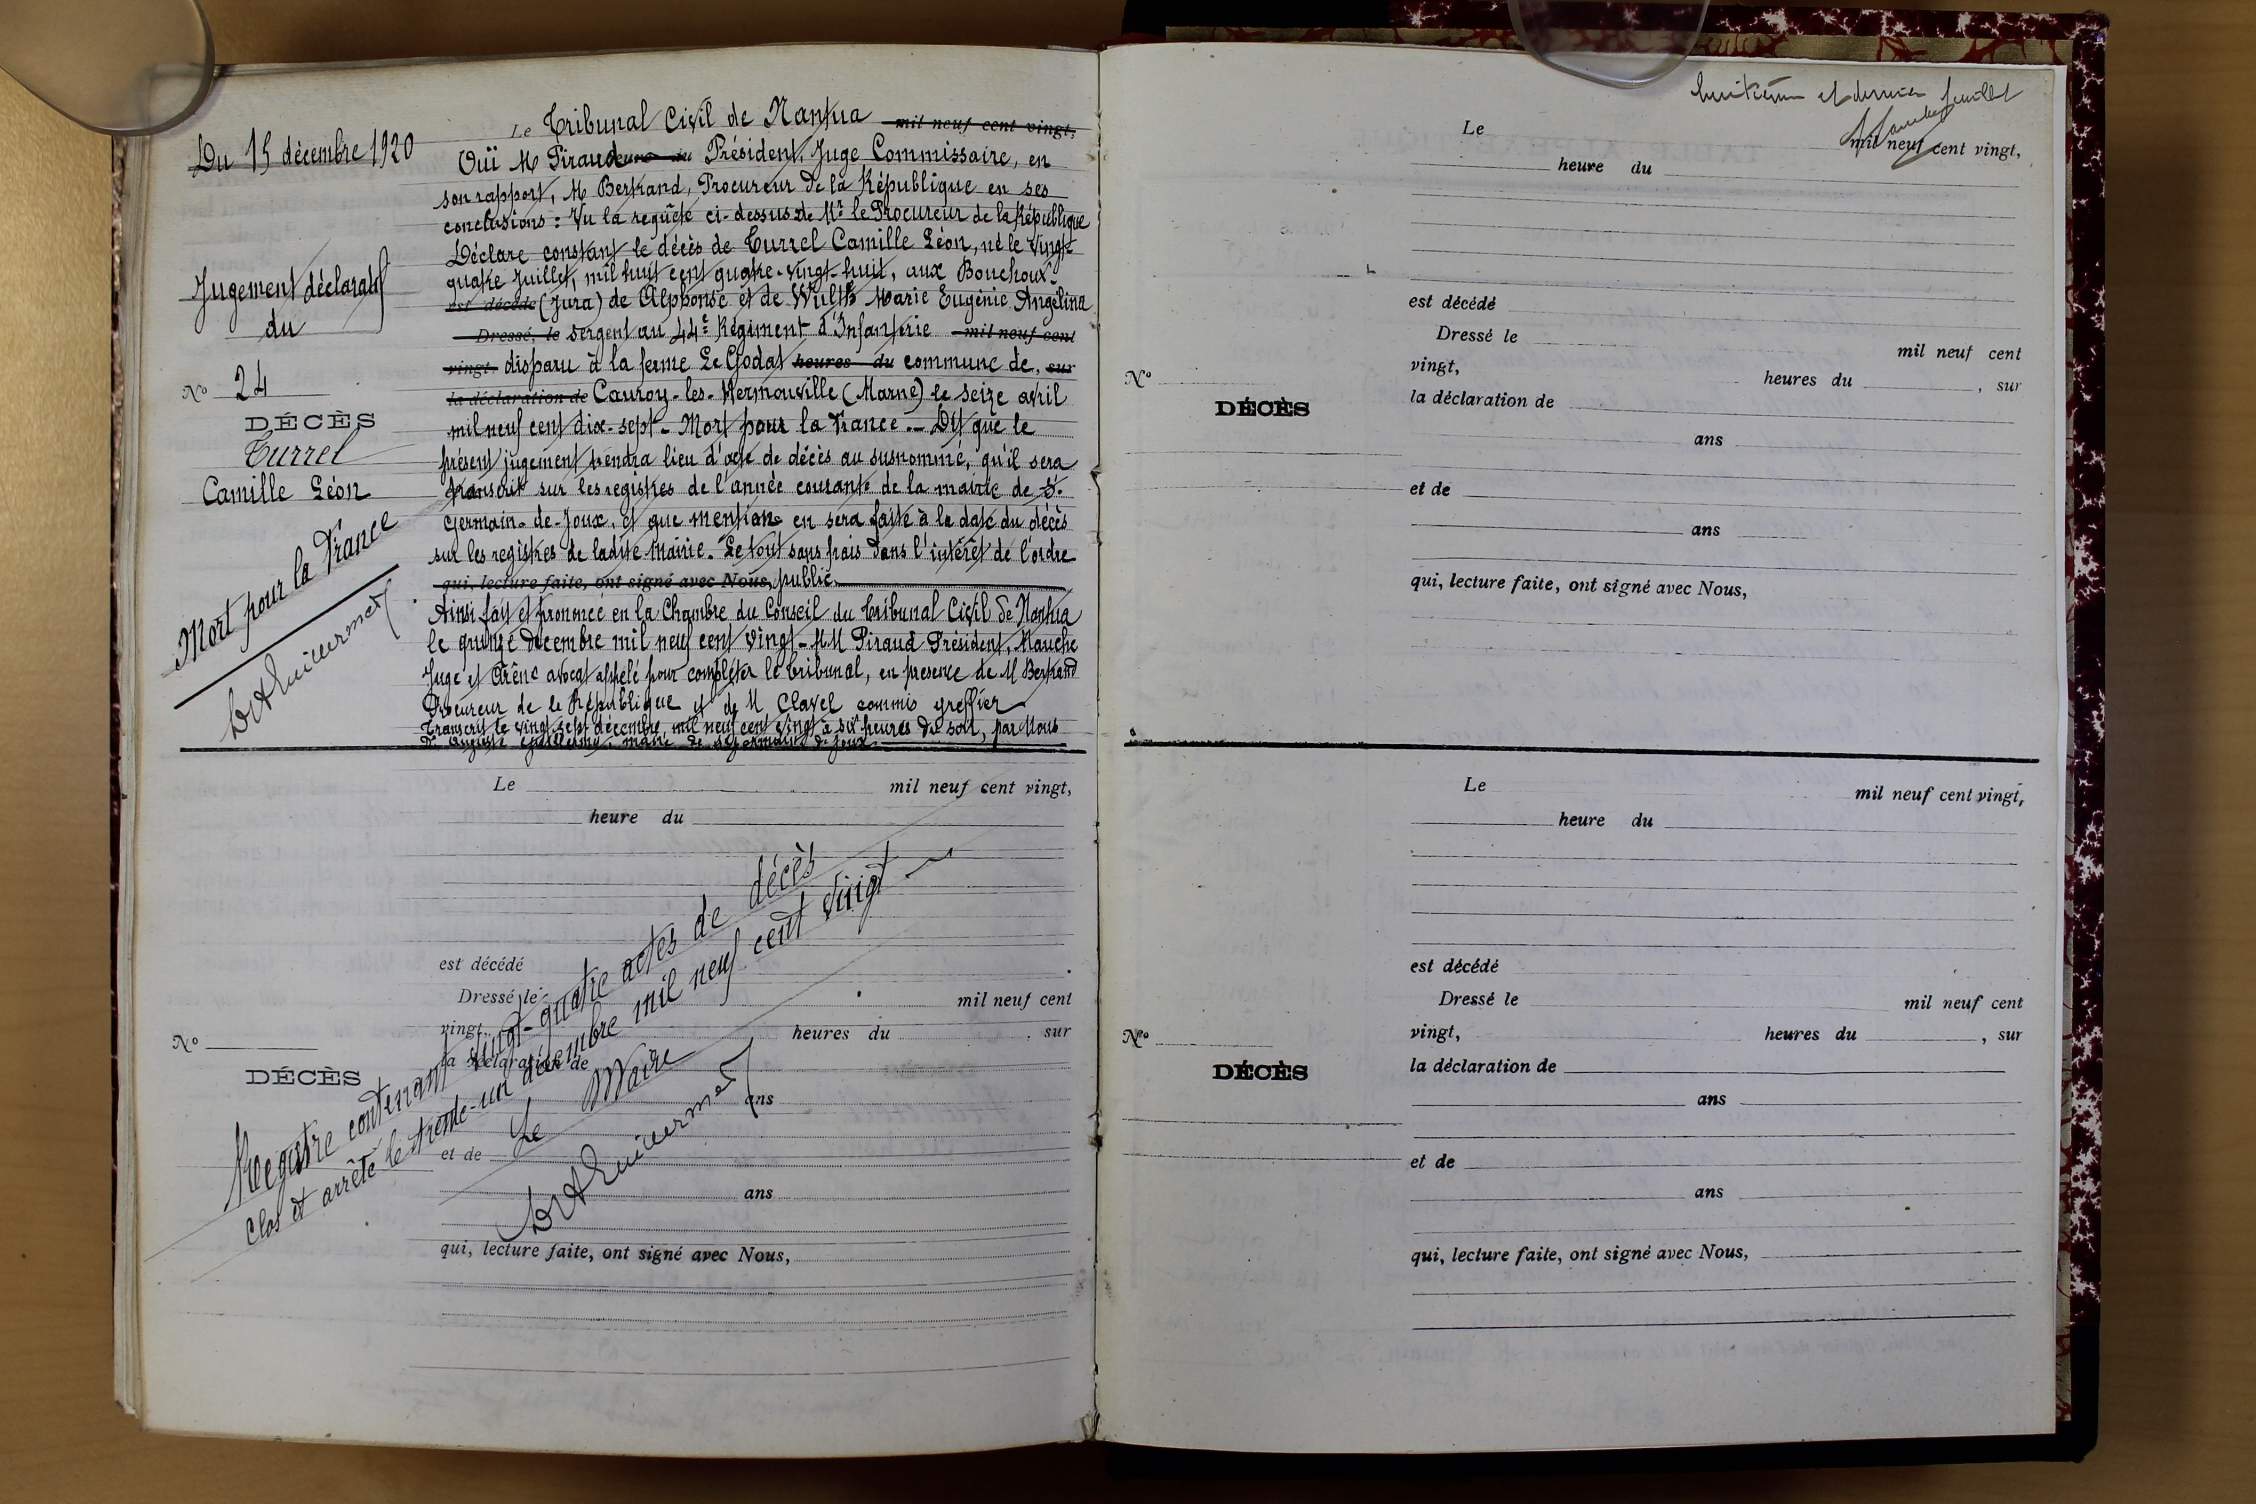 Du 15 décembre 1920
Jugement déclaratif
du
No 24
DÉCÈS
Turrel
Camille Léon
Mort pour la France
Dr A Guillermet
Le Tribunal Civil de Nantua mil neuf cent vingt,
Ouï M Piraud Président, Juge Commissaire, en
son rapport, M Bertrand, Procureur de la République en ses
conclusions : Vu la requête ci-dessus de Mr le Procureur de la République
Déclare constant le décès de Turrel Camille Léon, né le vingt-
quatre Juillet, mil huit cent quatre-vingt-huit, aux Bouchoux-
est décédé (Jura) de Alphonse et de Marie Eugénie Angélina
Dressé, le sergent au 44e Régiment d'Infanterie mil neuf cent
vingt disparu à la ferme Le Godat heures du commune de, sur
la déclaration de Cauroy-les-Hermonville (Marne) le seize avril
mil neuf cent dix-sept - Mort pour la France - Dit que le
présent jugement tiendra lieu d'acte de décès au susnommé, qu'il sera
transcrit sur les registres de l'année courante de la mairie de St
Germain-de-Joux, et que mention en sera faite à la date du décès
sur les registres de ladite Mairie. Le tout sans frais dans l'intérêt de l'ordre
qui, lecture faite, ont signé avec Nous, public.
Ainsi fait et prononcé en la Chambre du Conseil du Tribunal Civil de Nantua
le quinze décembre mil neuf cent vingt - MM Piraud Président, Mauche
Juge et Arène avocat appelé pour compléter le tribunal, en présence de M Bertrand
Procureur de le République et de M Clavel commis greffier
Transcrit le vingt sept décembre mil neuf cent vingt à six heures du soir, par Nous
Dr Auguste Guillermet, maire de St Germain de Joux
Le mil neuf cent vingt,
heure du
est décédé
Dressé le mil neuf cent
vingt, heures du , sur
la déclaration de
ans
et de
ans
qui, lecture faite, ont signé avec Nous,
No
DÉCÈS
Registre contenant vingt-quatre actes de décès
clos et arrêté le trente-un décembre mil neuf cent vingt
Le Maire
Dr A Guillermet
huitième et dernier feuillet
Le mil neuf cent vingt,
heure du
est décédé
Dressé le mil neuf cent
vingt, heures du , sur
la déclaration de
No
DÉCÈS
ans
et de
ans
qui, lecture faite, ont signé avec Nous,
Le mil neuf cent vingt,
heure du
est décédé
Dressé le mil neuf cent
vingt, heures du , sur
la déclaration de
No
DÉCÈS
ans
et de
ans
qui, lecture faite, ont signé avec Nous,